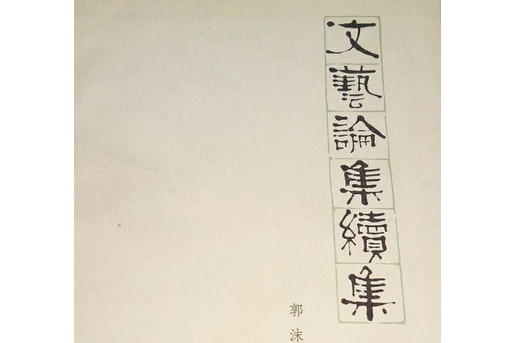 文藝論集續集
郭沫